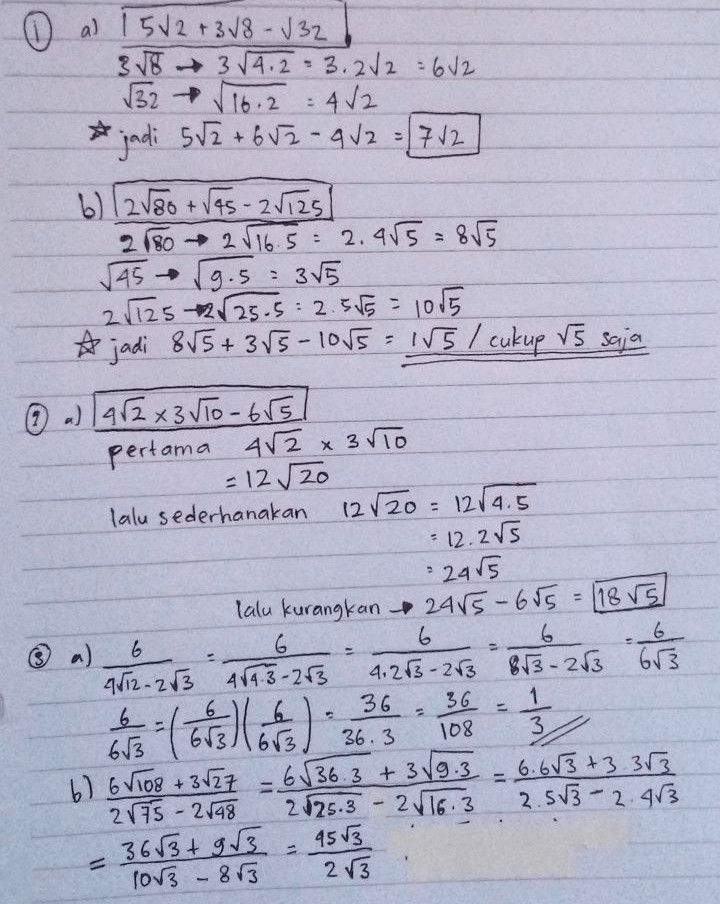 ① a) 5√2 + 3√8 - √32
3√8 → 3√4.2 = 3.2√2 = 6√2
√32 → √16.2 = 4√2
☆ jadi 5√2 + 6√2 - 4√2 = 7√2
b) 2√80 + √45 - 2√125
2√80 → 2√16.5 = 2.4√5 = 8√5
√45 → √9.5 = 3√5
2√125 → 2√25.5 = 2.5√5 = 10√5
☆ jadi 8√5 + 3√5 - 10√5 = 1√5 / cukup √5 saja
② a) 4√2 × 3√10 - 6√5
pertama 4√2 × 3√10
= 12√20
lalu sederhanakan 12√20 = 12√4.5
= 12.2√5
= 24√5
lalu kurangkan → 24√5 - 6√5 = 18√5
③ a) 6/(4√12 - 2√3) = 6/(4√4.3 - 2√3) = 6/(4.2√3 - 2√3) = 6/(8√3 - 2√3) = 6/(6√3)
6/(6√3) = (6/(6√3))(6/(6√3)) = 36/(36.3) = 36/108 = 1/3
b) (6√108 + 3√27)/(2√75 - 2√48) = (6√36.3 + 3√9.3)/(2√25.3 - 2√16.3) = (6.6√3 + 3.3√3)/(2.5√3 - 2.4√3)
= (36√3 + 9√3)/(10√3 - 8√3) = 45√3/(2√3)